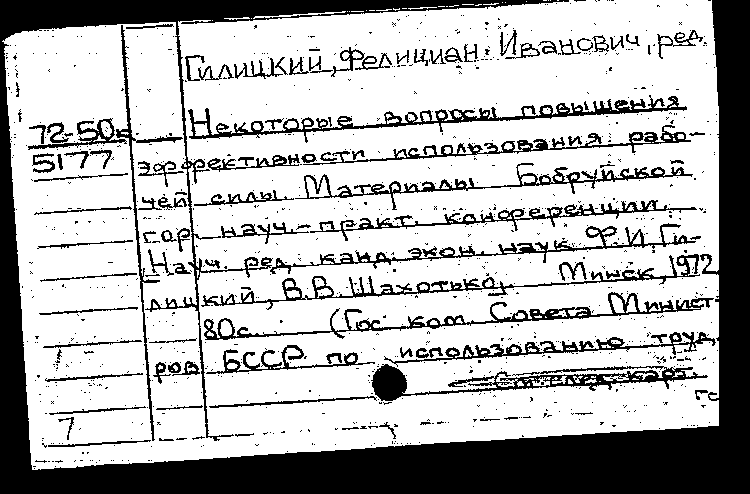 Гилицкий, Фелициан Иванович, ред.
72-50
5177
Некоторые вопросы повышения
эффективности использования рабо-
чей силы. Материалы Бобруйской
гор. науч.-практ. конференции.
[Науч. ред. канд. экон. наук Ф.И. Ги-
лицкий, В.В. Шахотько]. Минск, 1972
80с. (Гос. ком. Совета Минист-
ров БССР по использованию труд.
См. след. карт.
7